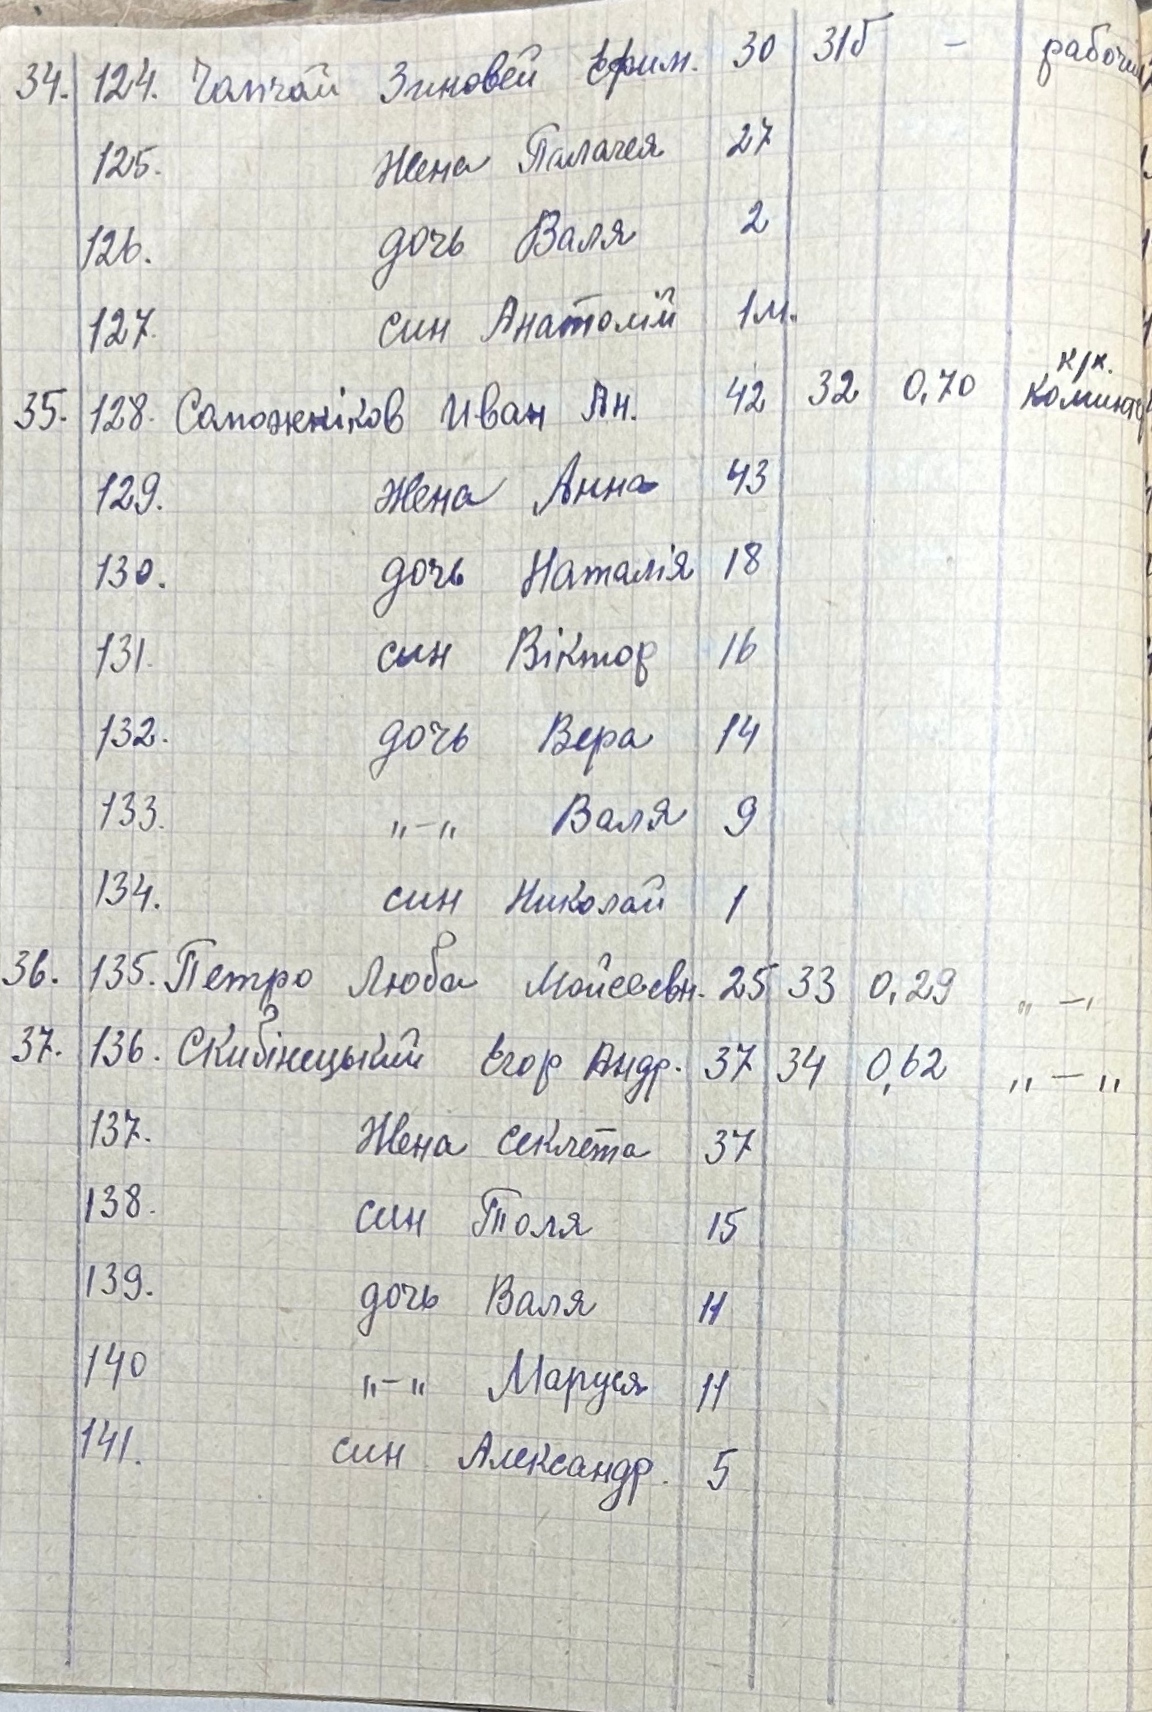 34. 124. Чапчай Зиновей Ефим. 30 31б - рабочий
125. Жена Палагея 27
126. дочь Валя 2
127. син Анатолій 1м.
к/х.
35. 128. Сапожніков Иван Ан. 42 32 0,70 Коминте
129. Жена Анна 43
130. дочь Наталія 18
131. син Віктор 16
132. дочь Вера 14
133. „-„ Валя 9
134. син Николай 1
36. 135. Петро Люба Мойсеевн. 25 33 0,29 „-„
37. 136. Скибінецький Егор Андр. 37 34 0,62 „-„
137. Жена Секлета 37
138. син Толя 15
139. дочь Валя 11
140 „-„ Маруся 11
141. син Александр. 5